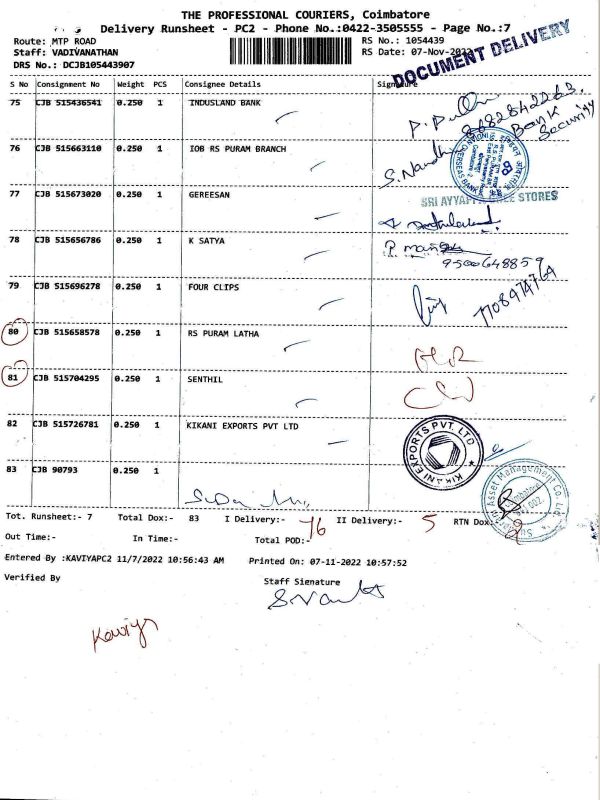 THE PROFESSIONAL COURIERS, Coimbatore
Delivery Runsheet - PC2 - Phone No.:0422-3505555 - Page No.:7
Route: MTP ROAD
RS No.: 1054439
Staff: VADIVANATHAN
RS Date: 07-Nov-2022
DRS No.: DCJB105443907
DOCUMENT DELIVERY
S No Consignment No Weight PCS Consignee Details Signature
75 CJB 515436541 0.250 1 INDUSLAND BANK
8682842263.
Bank
Security
76 CJB 515663110 0.250 1 IOB RS PURAM BRANCH
77 CJB 515673020 0.250 1 GEREESAN
STORES
78 CJB 515656786 0.250 1 K SATYA
9500648859
79 CJB 515696278 0.250 1 FOUR CLIPS
80 CJB 515658578 0.250 1 RS PURAM LATHA
81 CJB 515704295 0.250 1 SENTHIL
82 CJB 515726781 0.250 1 KIKANI EXPORTS PVT LTD
KIKANI EXPORTS PVT. LTD
83 CJB 90793 0.250 1
Asset Management Co. Ltd
Tot. Runsheet:- 7 Total Dox:- 83 I Delivery:- 76 II Delivery:- 5 RTN Dox:- 2
Out Time:- In Time:- Total POD:-
Entered By :KAVIYAPC2 11/7/2022 10:56:43 AM Printed On: 07-11-2022 10:57:52
Verified By Staff Signature
Kaviya